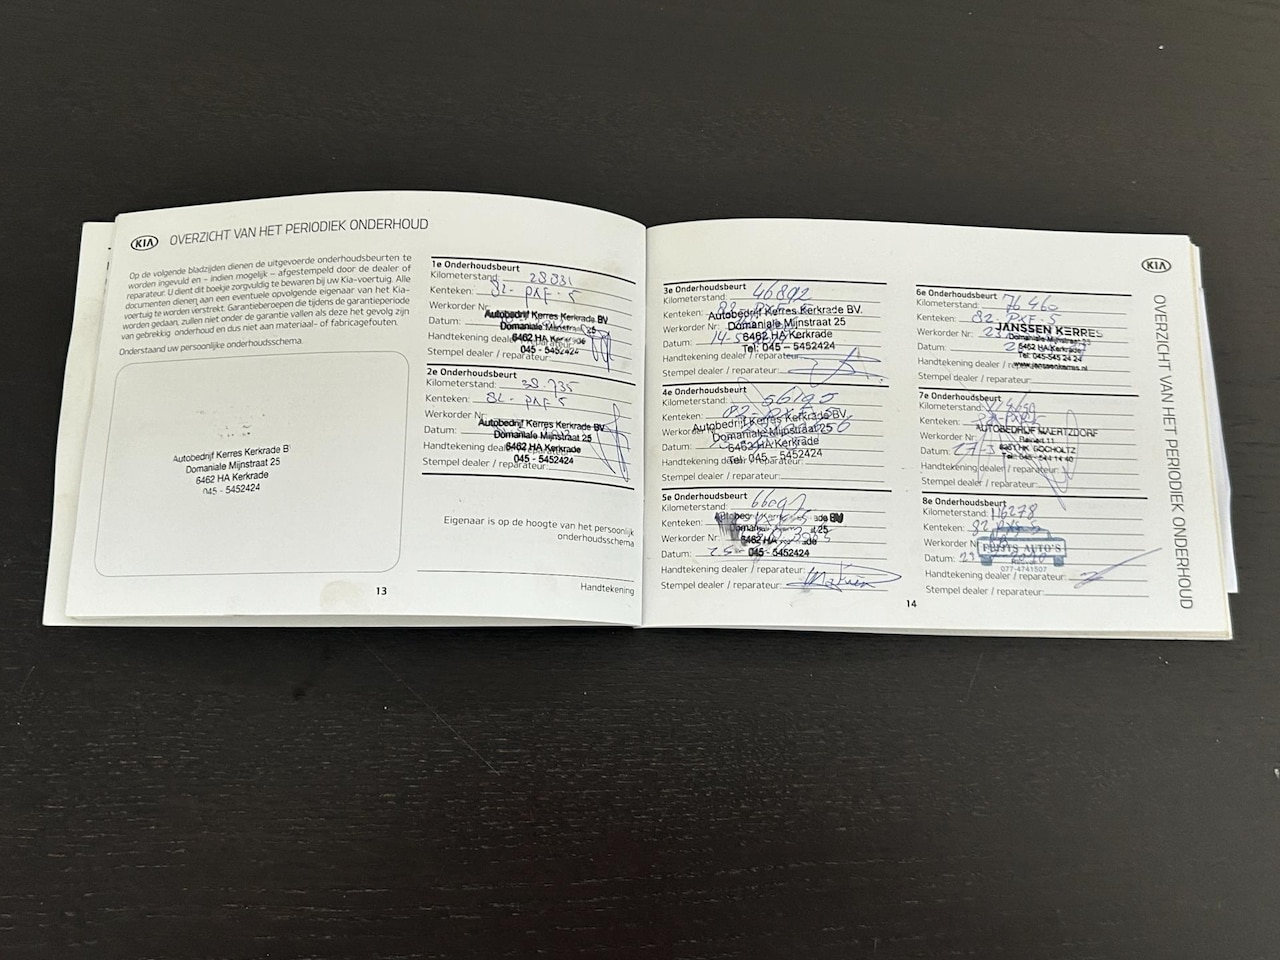 KIA OVERZICHT VAN HET PERIODIEK ONDERHOUD
Op de volgende bladzijden dienen de uitgevoerde onderhoudsbeurten te
worden ingevuld en – indien mogelijk – afgestempeld door de dealer of
reparateur. U dient dit boekje zorgvuldig te bewaren bij uw Kia-voertuig. Alle
documenten dienen aan een eventuele opvolgende eigenaar van het Kia-
voertuig te worden verstrekt. Garantieberoepen die tijdens de garantieperiode
worden gedaan, zullen niet onder de garantie vallen als deze het gevolg zijn
van gebrekkig onderhoud en dus niet aan materiaal- of fabricagefouten.
Onderstaand uw persoonlijke onderhoudsschema.
Autobedrijf Kerres Kerkrade B
Domaniale Mijnstraat 25
6462 HA Kerkrade
045 - 5452424
13
1e Onderhoudsbeurt
Kilometerstand: 28831
Kenteken: 82-PXF-5
Werkorder Nr:
Autobedrijf Kerres Kerkrade BV
Datum:
Domaniale Mijnstraat 25
6462 HA Kerkrade
Handtekening
045 - 5452424
Stempel dealer / reparateur:
2e Onderhoudsbeurt
Kilometerstand: 38.735
Kenteken: 82-PXF-5
Werkorder Nr:
Autobedrijf Kerres Kerkrade BV
Datum:
Domaniale Mijnstraat 25
6462 HA Kerkrade
Handtekening
045 - 5452424
Stempel dealer / reparateur:
Eigenaar is op de hoogte van het persoonlijk
onderhoudsschema
Handtekening
3e Onderhoudsbeurt
Kilometerstand: 46892
Kenteken:
Autobedrijf Kerres Kerkrade BV.
Werkorder Nr:
Domaniale Mijnstraat 25
Datum:
6462 HA Kerkrade
Tel: 045 – 5452424
Handtekening dealer / reparateur:
Stempel dealer / reparateur:
4e Onderhoudsbeurt
Kilometerstand:
Kenteken:
Autobedrijf Kerres Kerkrade BV.
Domaniale Mijnstraat 25
Datum:
6462 HA Kerkrade
Handtekening
Tel: 045 – 5452424
Stempel dealer / reparateur:
5e Onderhoudsbeurt
Kilometerstand:
Kenteken:
Werkorder Nr:
6462 HA
Datum:
045 - 5452424
Handtekening dealer / reparateur:
Stempel dealer / reparateur:
14
KIA
6e Onderhoudsbeurt
Kilometerstand: 76460
Kenteken: 82-PXF-5
Werkorder Nr:
JANSSEN KERRES
Domaniale Mijnstraat
Datum:
6462 HA Kerkrade
Tel: 045-545 24 24
Handtekening dealer / reparateur:
www.janssenkerres.nl
Stempel dealer / reparateur:
7e Onderhoudsbeurt
Kilometerstand:
Kenteken:
AUTOBEDRIJF WAERTZDORF
Werkorder Nr:
Datum:
Handtekening dealer / reparateur:
Stempel dealer / reparateur:
8e Onderhoudsbeurt
Kilometerstand: 116278
Kenteken: 82 PXF 5
Werkorder Nr:
AUTO'S
Datum:
077-4741507
Handtekening dealer / reparateur:
Stempel dealer / reparateur:
OVERZICHT VAN HET PERIODIEK ONDERHOUD